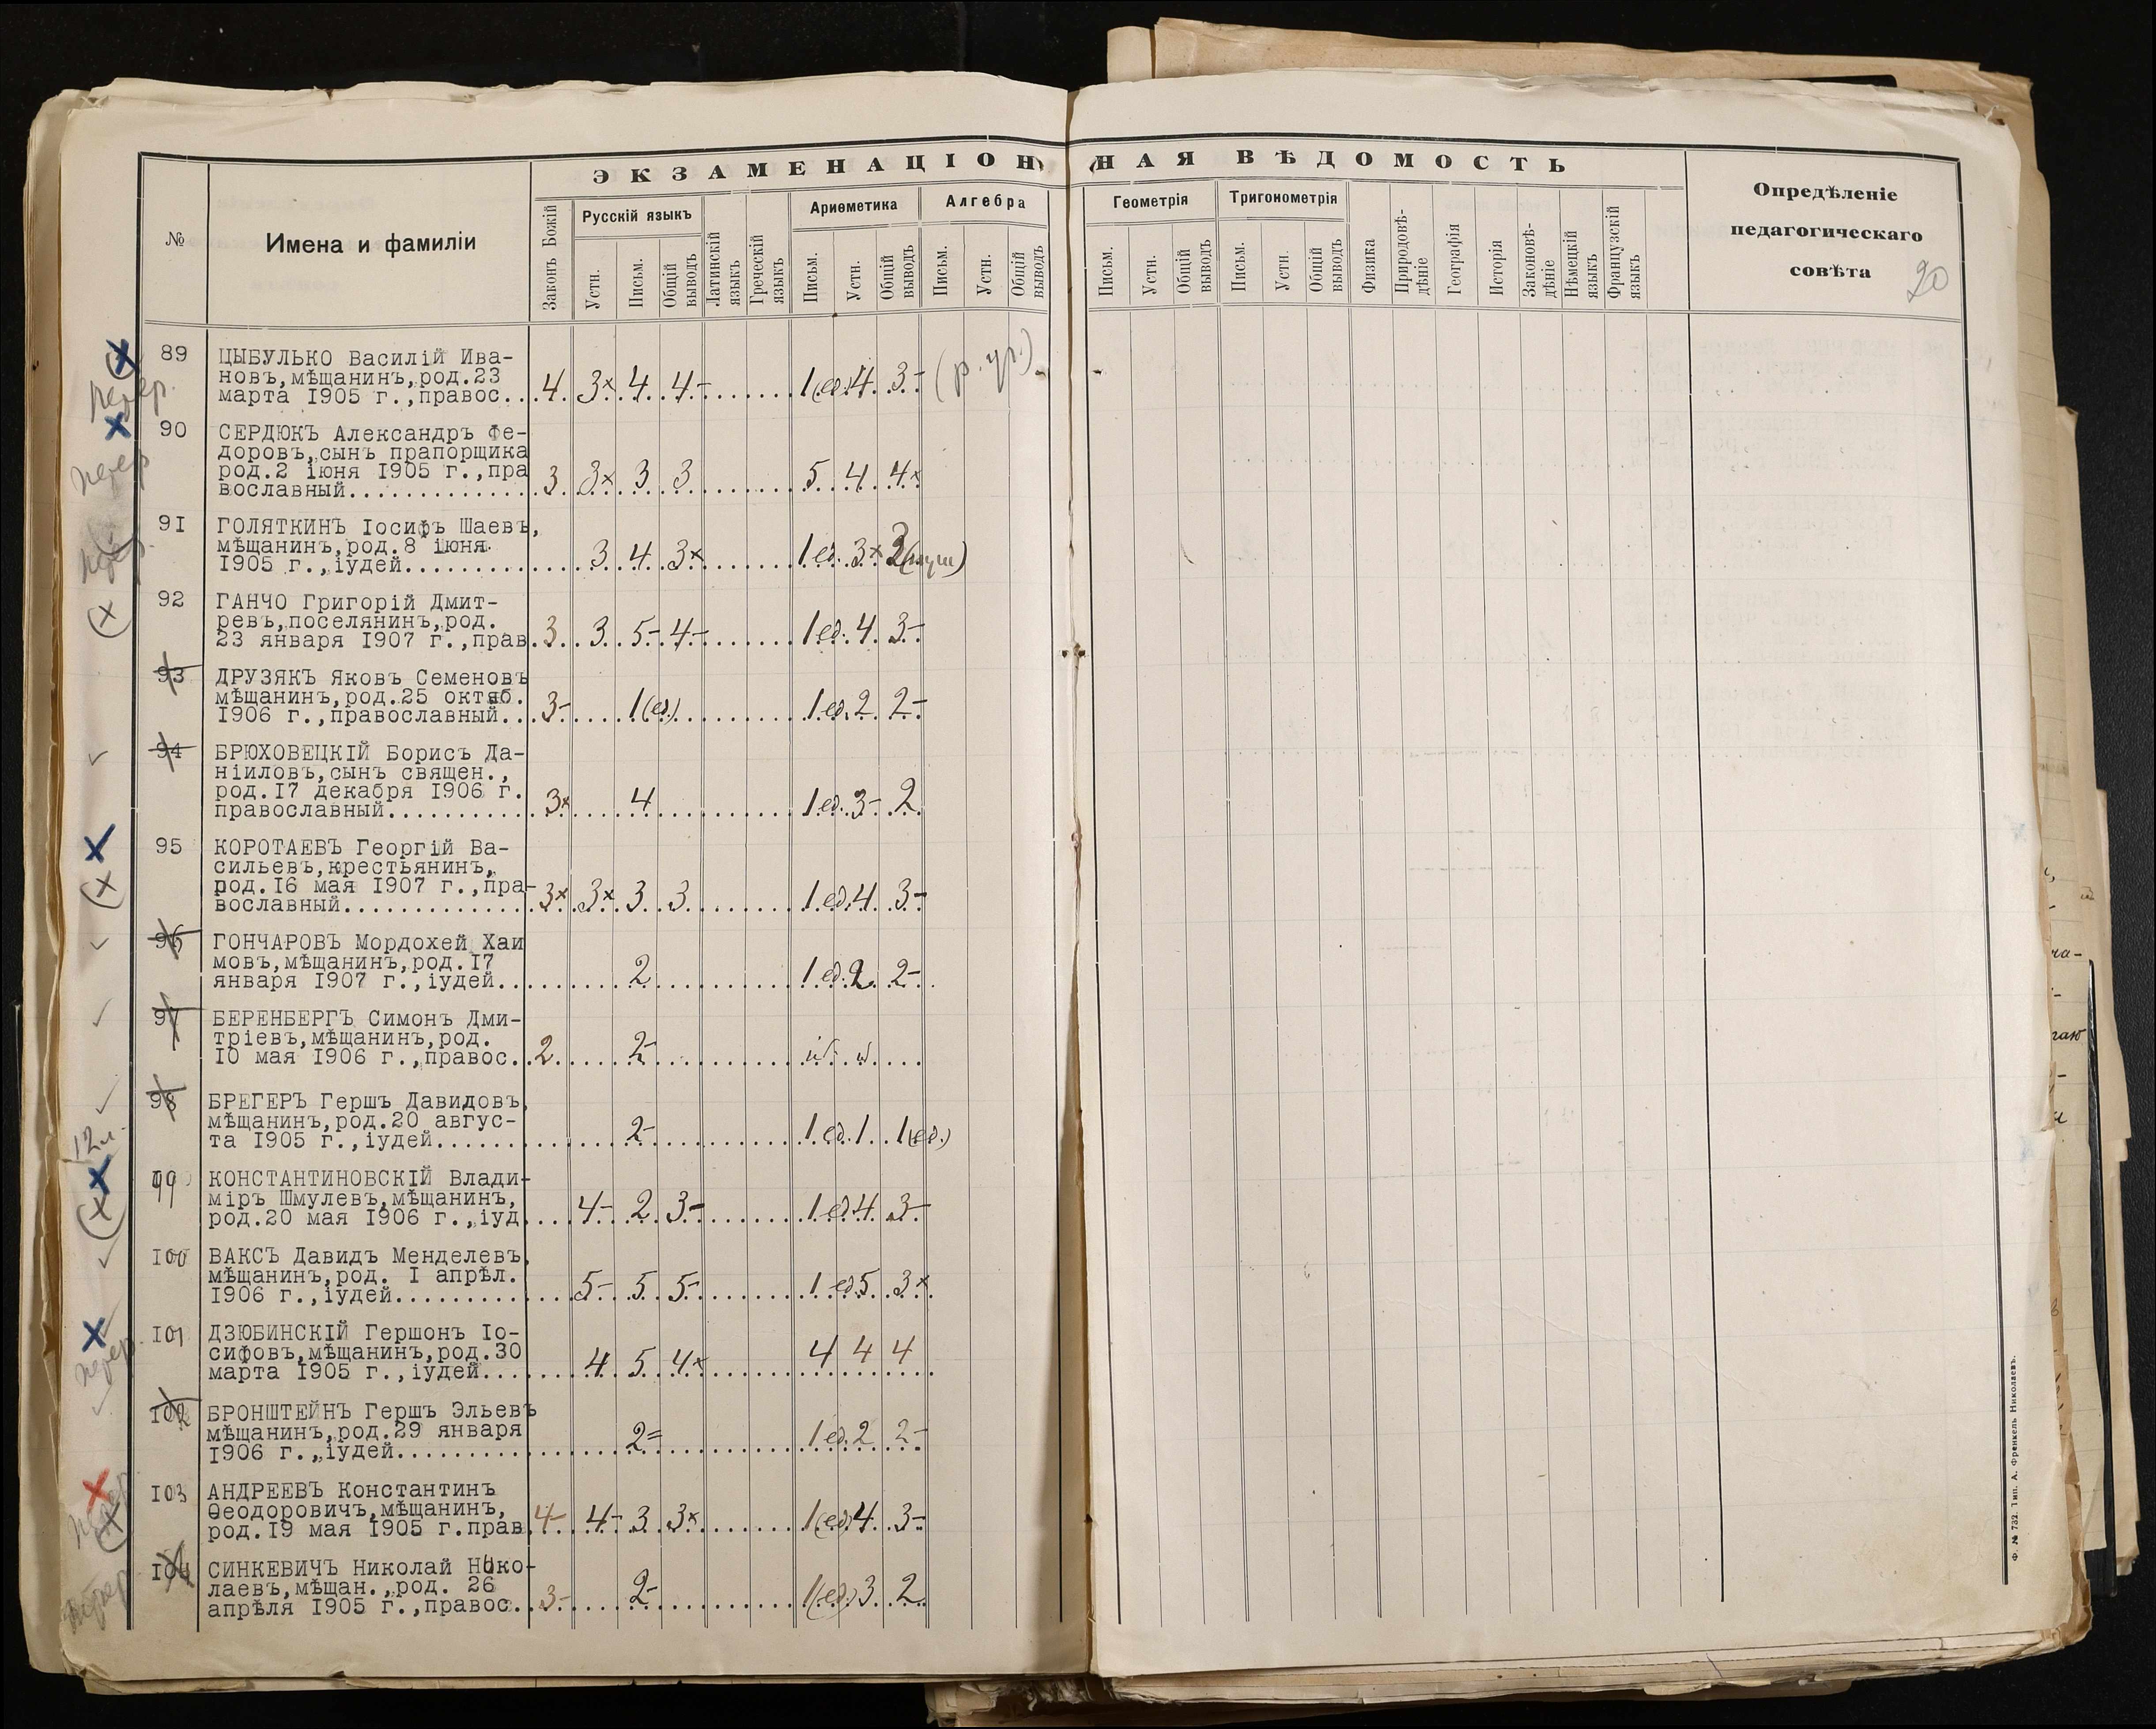 ЭКЗАМЕНАЦІОННАЯ ВѢДОМОСТЬ
№
Имена и фамиліи
Законъ Божій
Русскій языкъ
Устн.
Письм.
Общій выводъ
Латинскій языкъ
Греческій языкъ
Ариѳметика
Письм.
Устн.
Общій выводъ
Алгебра
Письм.
Устн.
Общій выводъ
Геометрія
Письм.
Устн.
Общій выводъ
Тригонометрія
Письм.
Устн.
Общій выводъ
Физика
Природовѣ-
дѣніе
Географія
Исторія
Законовѣ-
дѣніе
Нѣмецкій языкъ
Французскій языкъ
Опредѣленіе
педагогическаго
совѣта
20
89 ЦЫБУЛЬКО Василій Ива-
новъ,мѣщанинъ,род.23
марта 1905 г.,правос... 4 3× 4 4- 1(ед.) 4 3- (р. ур.)
90 СЕРДЮКЪ Александръ Фе-
доровъ,сынъ прапорщика
род.2 іюня 1905 г.,пра
вославный.............. 3 3× 3 3 5 4 4×
91 ГОЛЯТКИНЪ Іосифъ Шаевъ,
мѣщанинъ,род.8 іюня
1905 г.,іудей.......... 3 4 3× 1 ед. 3× 3
92 ГАНЧО Григорій Дмит-
ревъ,поселянинъ,род.
23 января 1907 г.,прав. 3 3 5- 4- 1 ед. 4 3-
93 ДРУЗЯКЪ Яковъ Семеновъ
мѣщанинъ,род.25 октяб.
1906 г.,православный... 3- 1(ед.) 1 ед. 2 2-
94 БРЮХОВЕЦКІЙ Борисъ Да-
ніиловъ,сынъ священ.,
род.17 декабря 1906 г.
православный........... 3× 4 1 ед. 3- 2
95 КОРОТАЕВЪ Георгій Ва-
сильевъ,крестьянинъ,
род.16 мая 1907 г.,пра-
вославный.............. 3× 3× 3 3 1 ед. 4 3-
96 ГОНЧАРОВЪ Мордохей Хаи
мовъ,мѣщанинъ,род.17
января 1907 г.,іудей... 2 1 ед. 2 2-
97 БЕРЕНБЕРГЪ Симонъ Дми-
тріевъ,мѣщанинъ,род.
10 мая 1906 г.,правос.. 2 2-
98 БРЕГЕРЪ Гершъ Давидовъ,
мѣщанинъ,род.20 авгус-
та 1905 г.,іудей....... 2- 1 ед. 1 1(ед.)
12 л.
99 КОНСТАНТИНОВСКІЙ Влади-
міръ Шмулевъ,мѣщанинъ,
род.20 мая 1906 г.,іуд. 4- 2 3- 1 ед 4 3-
100 ВАКСЪ Давидъ Менделевъ,
мѣщанинъ,род. 1 апрѣл.
1906 г.,іудей.......... 5- 5 5- 1 ед 5 3×
101 ДЗЮБИНСКІЙ Гершонъ Іо-
сифовъ,мѣщанинъ,род.30
марта 1905 г.,іудей.... 4 5 4× 4 4 4
102 БРОНШТЕЙНЪ Гершъ Эльевъ
мѣщанинъ,род.29 января
1906 г.,іудей.......... 2= 1 ед. 2 2-
103 АНДРЕЕВЪ Константинъ
Ѳеодоровичъ,мѣщанинъ,
род.19 мая 1905 г.прав. 4- 4- 3 3× 1(ед) 4 3-
104 СИНКЕВИЧЪ Николай Нико-
лаевъ,мѣщан.,род. 26
апрѣля 1905 г.,правос.. 3- 2- 1(ед.) 3 2
Ф. № 732. Тип. А. Френкель Николаевъ.